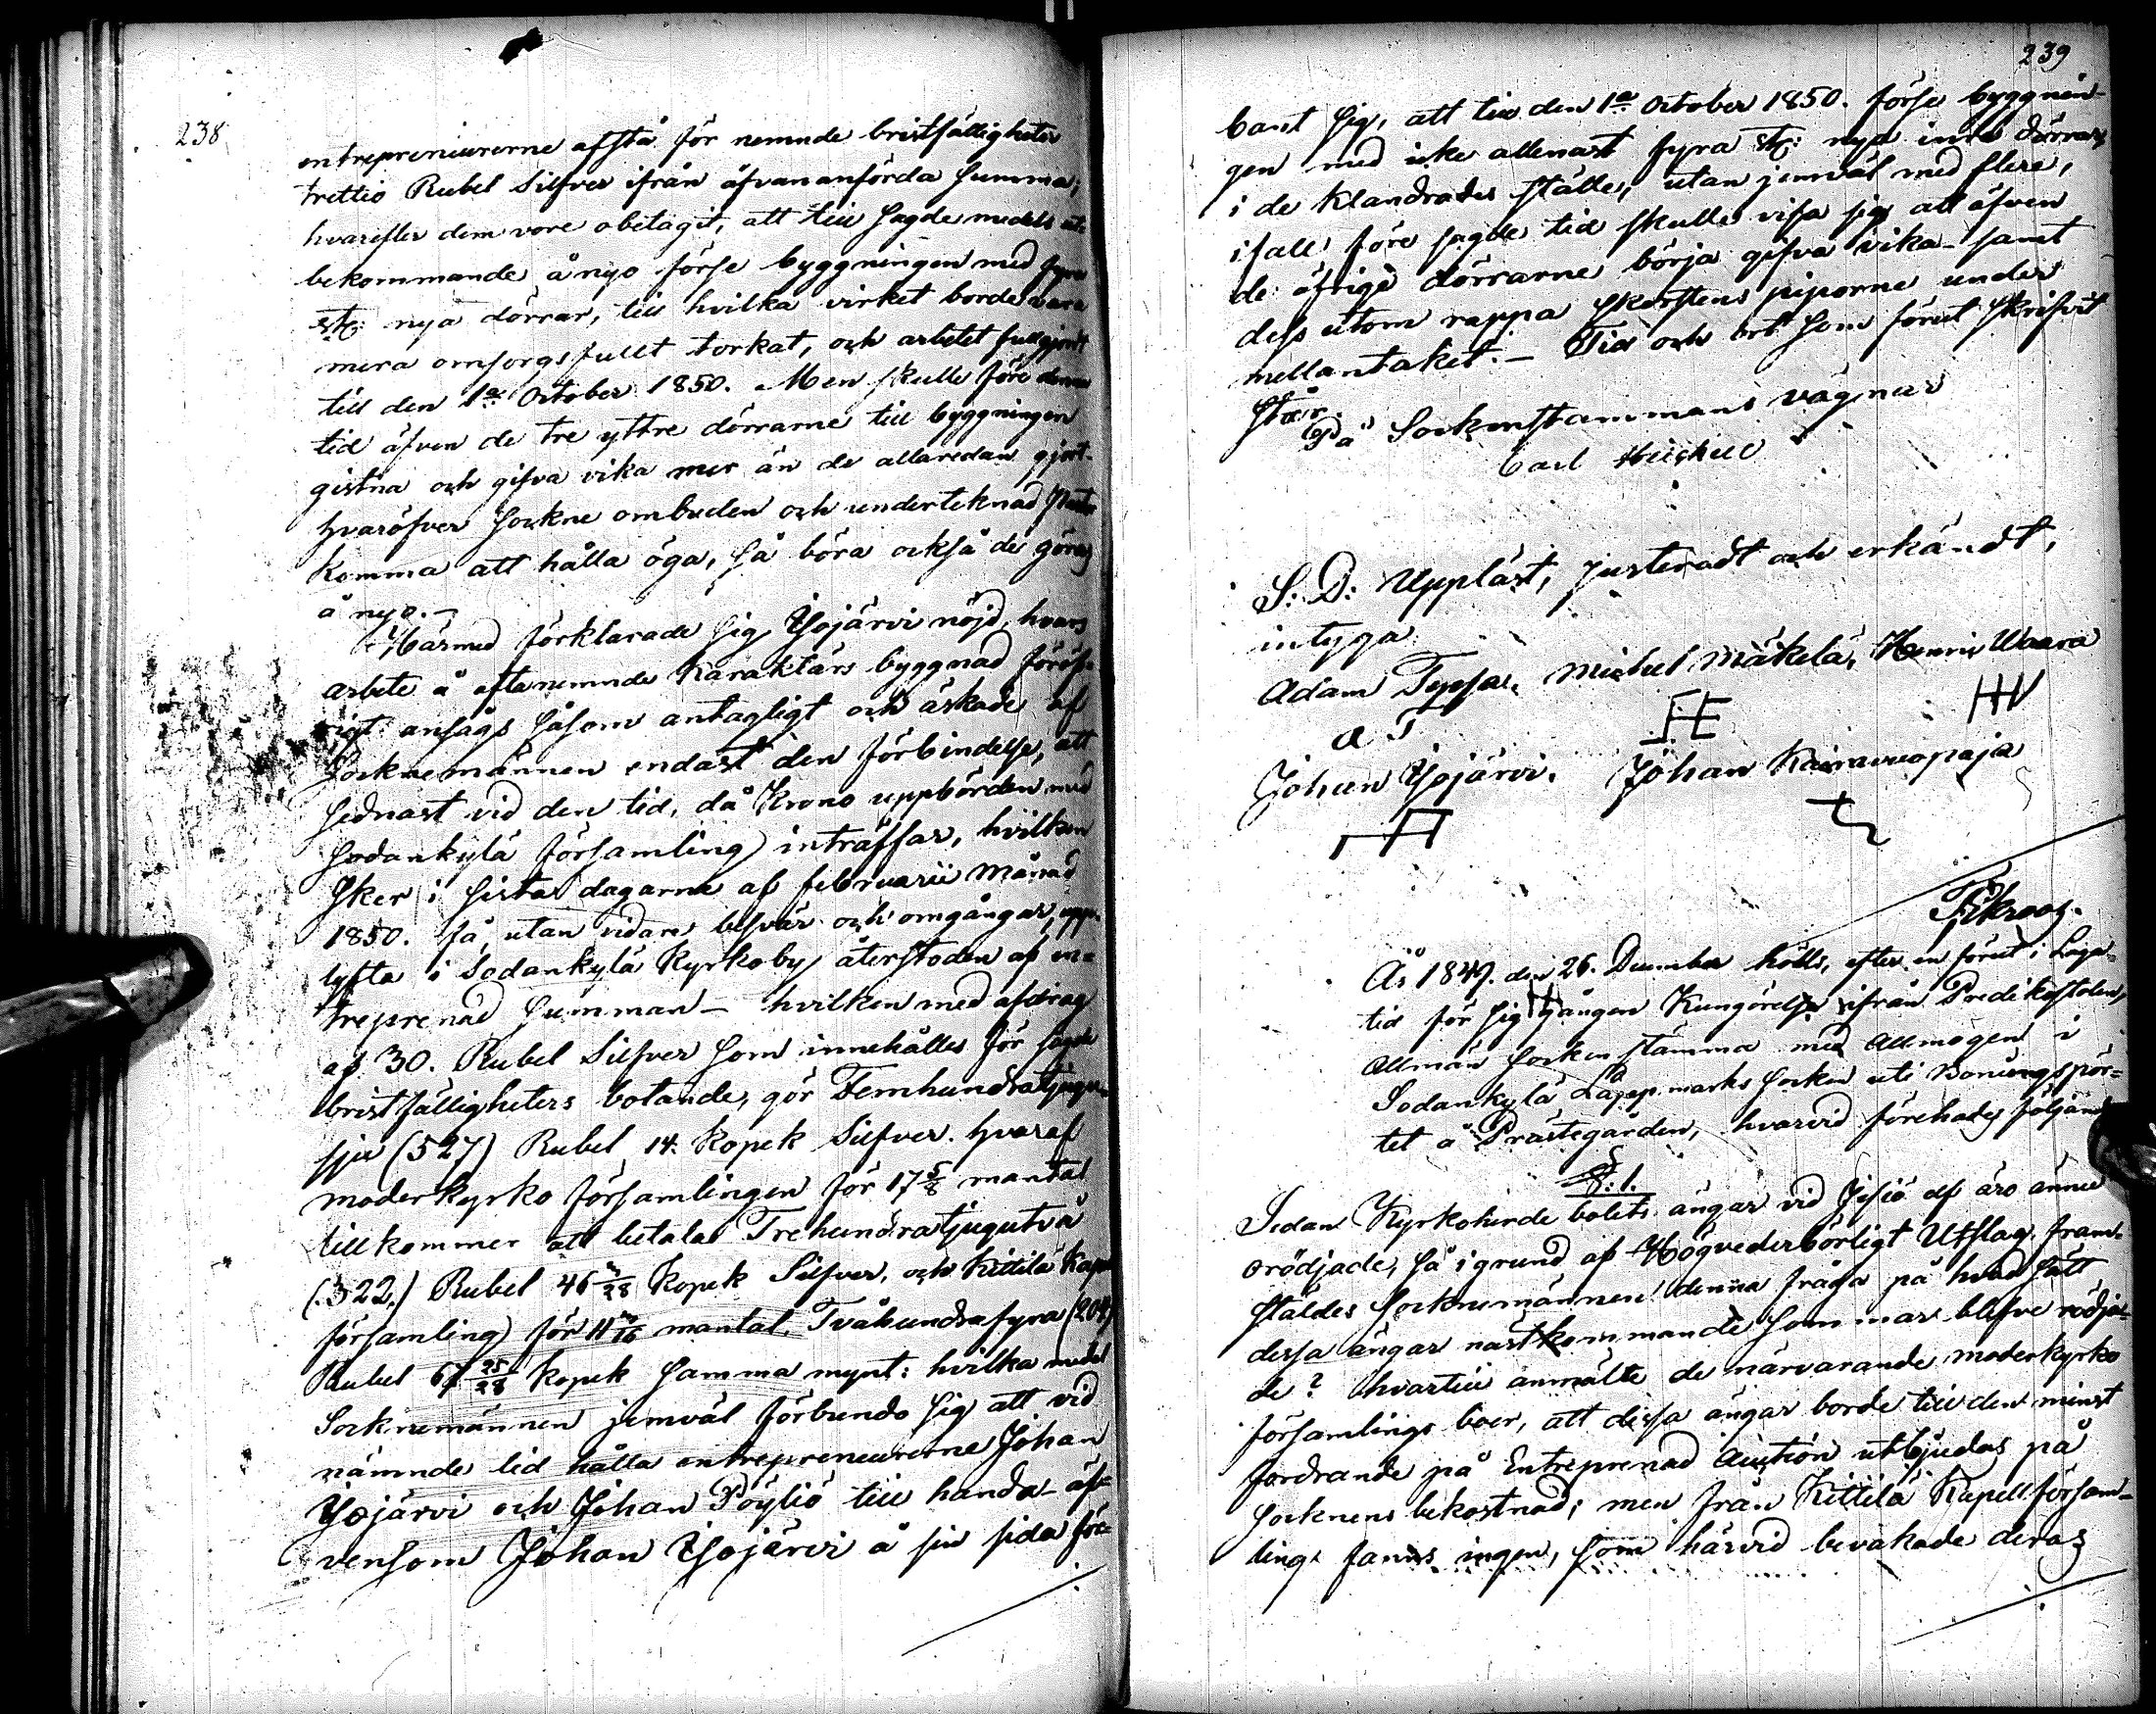 238
entrepreneurerne afstå för nemnde bristfälligheter
trettio Rubel Silfver ifrån öfvananförda Summa,
hvarefter dem vore obetagit, att till sagde medels ut-
bekommande å nyo förse byggningen med fyra
st: nya dörrar, till hvilka virket borde vara
mera omsorgsfullt torkat, och arbetet fullgjordt
till den 1a October 1850. Men skulle före denna
tid äfven de tre yttre dörrarne till byggningen
gistna och gifva vika mer än de allaredan gjort-
hvaröfver Sockne ombuden och undertecknad
komma att hålla öga, så böra också de göras
å nyo.-
Härmed förklarade sig Ysojärvi nöjd, hvars
arbete å oftanemnde Karaktärs byggnad föröf-
rigt ansågs såsom antagligt och äskade af
Socknemännen endast den förbindelse, att
sednast vid den tid, då Krono uppbörden med
Sodankylä församling inträffar, hvilken
sker i sista dagarna af februarii månad
1850. få, utan vidare besvär och omgångar, upp-
lyfta i Sodankylä Kyrkoby återstoden af en-
treprenad Summan - hvilken med afdrag
af 30. Rubel Silfver som innehålles för sagde
bristfälligheters botande, gör Femhundratjugu-
sju (527) Rubel 14. Kopek Silfver. hvaraf
moderkyrko församlingen för 17 5/8 mantal
tillkommer att betala Trehundratjugutvå
(322.) Rubel 46 3/28 Kopek Silfver, och Kittilä Kapell
församling för 11 3/16 mantal. Tvåhundrafyra (204)
Rubel 67 25/28 Kopek samma mynt: hvilka medel
Socknemännen jemväl förbundo sig att vid
nämnde tid hålla entrepreneurerne Johan
Ysojärvi och Johan Pöyliö till handa - äf-
vensom Johan Ysojärvi å sin sida för-
239
bant sig, att till den 1a October 1850. förse byggnin-
gen med icke allenast fyra st: nya inre dörrar,
i de klandrades ställe, utan jemväl med flere,
ifall före sagde tid skulle visa sig att äfven
de öfrige dörrarne börja gifva vika - samt
dess utom rappa skorstens piporne under
mellantaket. - Tid och ort som förut skrifvit
står.
På Sockenstämmans vägnar
Carl Heickell
S: D: Uppläst, justeradt och erkändt,
intyga
Adam Teppa. Michel Mäkelä, Henric Waara
A T
Johan Ysojärvi. Johan Kairavuopaja
År 1849. den 26. December hölls, efter en förut i Laga
tid för sig gången Kungörelse ifrån Predikostolen,
Allmän Sockenstämma med Allmogen i
Sodankylä Lappmarks Socken uti Boningspör-
tet å Prästegården, hvarvid förehades följande
§: 1.
Sedan Kyrkoherde bolets ängar vid Jesiö elf äro ännu
orödjade, så i grund af Högvederbörligt Utslag fram-
stäldes Socknemännen denna fråga på hvad sätt
dessa ängar nästkommande Sommar blefve rödja-
de? hvartill anmälte de närvarande moderkyrko
församlings boer, att dessa ängar borde till den minst
fordrande på Entreprenad Auction utbjudas på
Socknens bekostnad; men från Kittilä Kapellförsam-
ling fanns ingen, som härvid bevakade deras